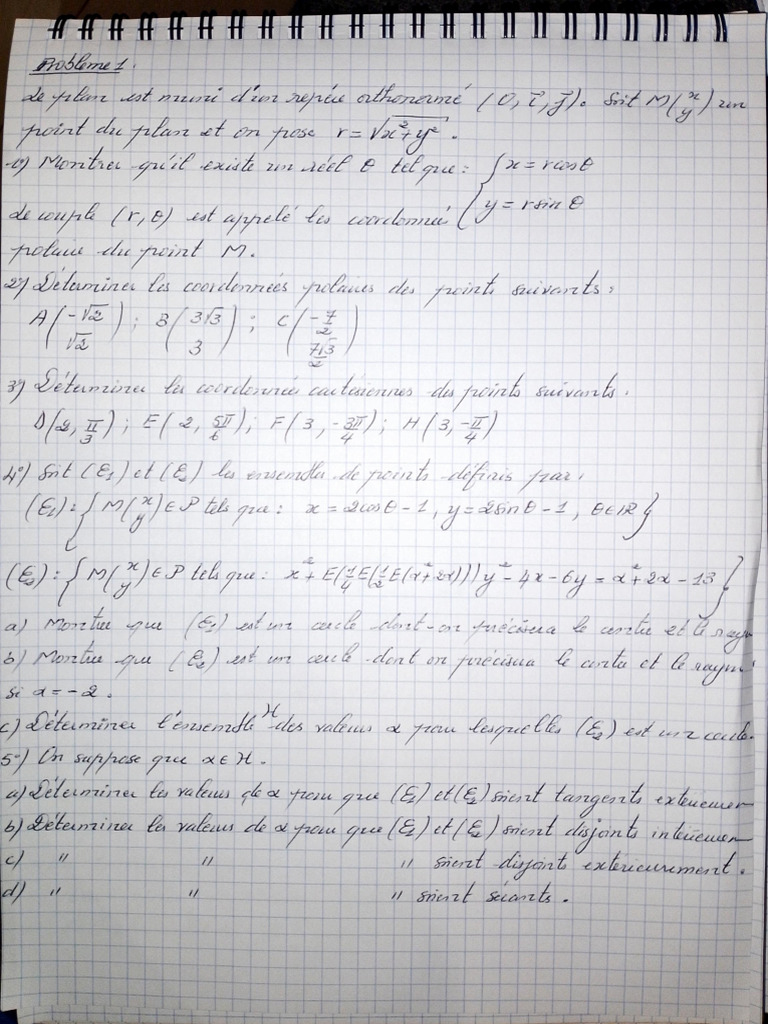 Probleme 1.
Le plan est muni d'un repère orthonormé (O, i⃗, j⃗). Soit M(x y) un
point du plan et on pose r = √(x²+y²).
1°) Montrer qu'il existe un réel θ tel que : { x = r cosθ
y = r sin θ
Le couple (r, θ) est appelé les coordonnée
polaire du point M.
2°) Déterminer les coordonnées polaires des points suivants :
A(-√2 √2) ; B(3√3 3) ; C(-7/2 7√3/2)
3°) Déterminer les coordonnée cartésiennes des points suivants.
D(2, π/3) ; E(2, 5π/6) ; F(3, -3π/4) ; H(3, -π/4)
4°) Soit (E₁) et (E₂) les ensembles de points définis par :
(E₁) : { M(x y) ∈ P tels que : x = 2cosθ - 1, y = 2sinθ - 1, θ ∈ ℝ }
(E₂) : { M(x y) ∈ P tels que : x² + E(1/4 E(1/2 E(α²+2α))) y² - 4x - 6y = α² + 2α - 13 }
a) Montrer que (E₁) est un cercle dont on précisera le centre et le rayon
b) Montrer que (E₂) est un cercle dont on précisera le centre et le rayon
si α = -2.
c) Déterminer l'ensemble H des valeurs α pour lesquelles (E₂) est un cercle.
5°) On suppose que α ∈ H.
a) Déterminer les valeurs de α pour que (E₁) et (E₂) soient tangents exterieurem
b) Déterminer les valeurs de α pour que (E₁) et (E₂) soient disjoints interieurem
c) " " " soient disjoints exterieurement.
d) " " " soient sécants.